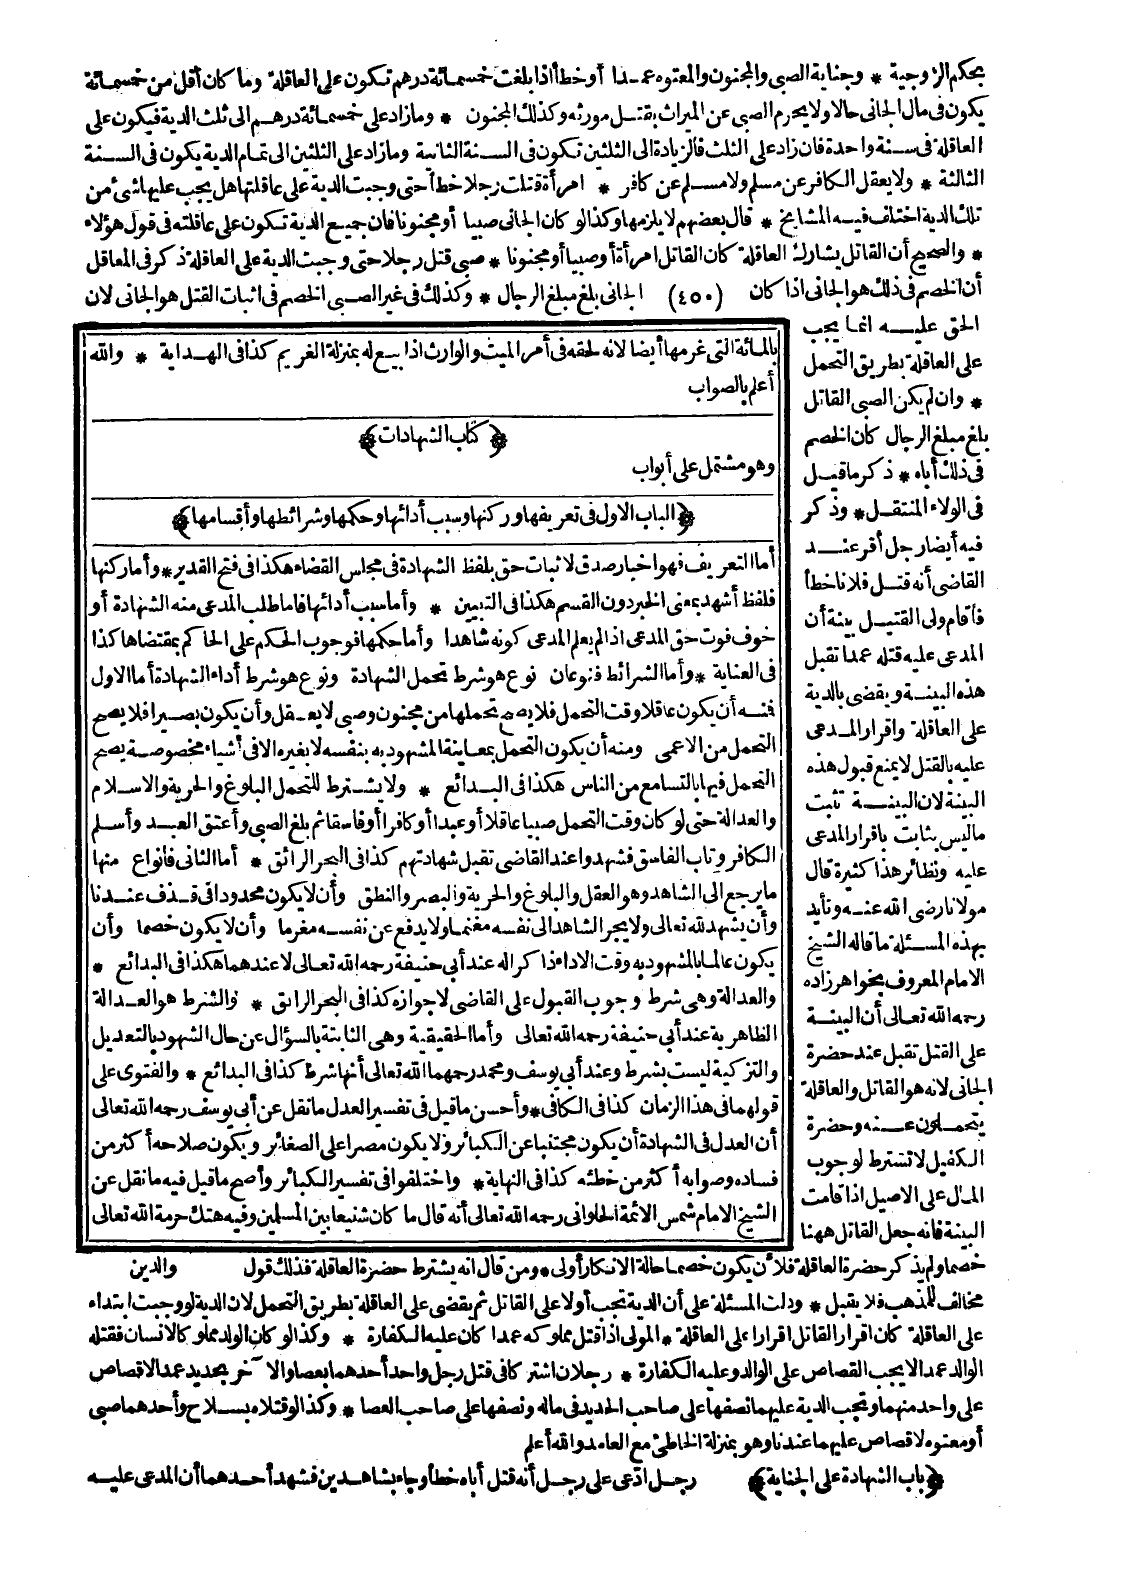 بحكم الزوجية * وجناية الصبي والمجنون والمعتوه عمدا أو خطأ اذا بلغت خمسمائة درهم تكون على العاقلة وما كان أقل من خمسمائة
يكون فى مال الجانى حالا ولا يحرم الصبى عن الميراث بقتل مورثه وكذلك المجنون * وما زاد على خمسمائة درهم الى ثلث الدية فيكون على
العاقلة فى سنة واحدة فان زاد على الثلث فالزيادة الى الثلثين تكون فى السنة الثانية وما زاد على الثلثين الى تمام الدية يكون فى السنة
الثالثة * ولا يعقل الكافر عن مسلم ولا مسلم عن كافر * امرأة قتلت رجلا خطأ حتى وجبت الدية على عاقلتها هل يجب عليها شئ من
تلك الدية اختلف فيه المشايخ * قال بعضهم لا يلزمها وكذا لو كان الجانى صبيا أو مجنونا فان جميع الدية تكون على عاقلته فى قول هؤلاء
* والصحيح أن القاتل يشارك العاقلة كان القاتل امرأة أو صبيا أو مجنونا * صبى قتل رجلا حتى وجبت الدية على العاقلة ذكر فى المعاقل
أن الخصم فى ذلك هو الجانى اذا كان (٤٥٠) الجانى بلغ مبلغ الرجال * وكذلك فى غير الصبى الخصم فى اثبات القتل هو الجانى لان
الحق عليه انما يجب
على العاقلة بطريق التحمل
* وان لم يكن الصبى القاتل
بلغ مبلغ الرجال كان الخصم
فى ذلك أباه * ذكر ما قيل
فى الولاء المنتقل * وذكر
فيه أيضا رجل أقر عند
القاضى أنه قتل فلانا خطأ
فأقام ولى القتيل بينة أن
المدعى عليه قتله عمدا تقبل
هذه البينة ويقضى بالدية
على العاقلة واقرار المدعى
عليه بالقتل لا يمنع قبول هذه
البينة لان البينة تثبت
ما ليس بثابت باقرار المدعى
عليه ونظائر هذا كثيرة قال
مولانا رضى الله عنه وتأيد
بهذه المسئلة ما قاله الشيخ
الامام المعروف بخواهر زاده
رحمه الله تعالى أن البينة
على القتل تقبل عند حضرة
الجانى لانه هو القاتل والعاقلة
يتحملون عنه وحضرة
الكفيل لا تشترط لوجوب
المال على الاصيل اذا قامت
البينة فانه جعل القاتل ههنا
بالمائة التى غرمها أيضا لانه لحقه فى أمر الميت والوارث اذا بيع له بمنزلة الغريم كذا فى الهداية * والله
أعلم بالصواب
﴿كتاب الشهادات﴾
وهو مشتمل على أبواب
﴿الباب الاول فى تعريفها وركنها وسبب أدائها وحكمها وشرائطها وأقسامها﴾
أما التعريف فهو اخبار صدق لاثبات حق بلفظ الشهادة فى مجلس القضاء هكذا فى فتح القدير * وأما ركنها
فلفظ أشهد بمعنى الخبر دون القسم هكذا فى التبيين * وأما سبب أدائها فاما طلب المدعى منه الشهادة أو
خوف فوت حق المدعى اذا لم يعلم المدعى كونه شاهدا وأما حكمها فوجوب الحكم على الحاكم بمقتضاها كذا
فى العناية * وأما الشرائط فنوعان نوع هو شرط تحمل الشهادة ونوع هو شرط أداء الشهادة أما الاول
فمنه أن يكون عاقلا وقت التحمل فلا يصح تحملها من مجنون وصبى لا يعقل وأن يكون بصيرا فلا يصح
التحمل من الاعمى ومنه أن يكون التحمل بمعاينة المشهود به بنفسه لا بغيره الا فى أشياء مخصوصة يصح
التحمل فيها بالتسامع من الناس هكذا فى البدائع * ولا يشترط للتحمل البلوغ والحرية والاسلام
والعدالة حتى لو كان وقت التحمل صبيا عاقلا أو عبدا أو كافرا أو فاسقا ثم بلغ الصبى وأعتق العبد وأسلم
الكافر وتاب الفاسق فشهدوا عند القاضى تقبل شهادتهم كذا فى البحر الرائق * أما الثانى فأنواع منها
ما يرجع الى الشاهد وهو العقل والبلوغ والحرية والبصر والنطق وأن لا يكون محدودا فى قذف عندنا
وأن يشهد لله تعالى ولا يجر الشاهد الى نفسه مغنما ولا يدفع عن نفسه مغرما وأن لا يكون خصما وأن
يكون عالما بالمشهود به وقت الاداء ذاكرا له عند أبى حنيفة رحمه الله تعالى لا عندهما هكذا فى البدائع *
والعدالة وهى شرط وجوب القبول على القاضى لا جوازه كذا فى البحر الرائق * والشرط هو العدالة
الظاهرية عند أبى حنيفة رحمه الله تعالى وأما الحقيقية وهى الثابتة بالسؤال عن حال الشهود بالتعديل
والتزكية ليست بشرط وعند أبى يوسف ومحمد رحمهما الله تعالى أنها شرط كذا فى البدائع * والفتوى على
قولهما فى هذا الزمان كذا فى الكافى * وأحسن ما قيل فى تفسير العدل ما نقل عن أبى يوسف رحمه الله تعالى
أن العدل فى الشهادة أن يكون مجتنبا عن الكبائر ولا يكون مصرا على الصغائر ويكون صلاحه أكثر من
فساده وصوابه أكثر من خطئه كذا فى النهاية * واختلفوا فى تفسير الكبائر وأصح ما قيل فيه ما نقل عن
الشيخ الامام شمس الائمة الحلوانى رحمه الله تعالى أنه قال ما كان شنيعا بين المسلمين وفيه هتك حرمة الله تعالى
والدين
خصما ولم يذكر حضرة العاقلة فلأن يكون خصما حالة الانكار أولى * ومن قال انه يشترط حضرة العاقلة فذلك قول
مخالف للمذهب فلا يقبل * ودلت المسئلة على أن الدية تجب أولا على القاتل ثم يقضى على العاقلة بطريق التحمل لان الدية لو وجبت ابتداء
على العاقلة كان اقرار القاتل اقرارا على العاقلة * المولى اذا قتل مملوكه عمدا كان عليه الكفارة * وكذا لو كان الولد مملوكا لانسان فقتله
الوالد عمدا لا يجب القصاص على الوالد وعليه الكفارة * رجلان اشتركا فى قتل رجل واحد أحدهما بعصا والآخر بحديد عمدا لا قصاص
على واحد منهما وتجب الدية عليهما نصفها على صاحب الحديد فى ماله ونصفها على صاحب العصا * وكذا لو قتلاه بسلاح وأحدهما صبى
أو معتوه لا قصاص عليهما عندنا وهو بمنزلة الخاطئ مع العامد والله أعلم
﴿باب الشهادة على الجناية﴾ رجل ادّعى على رجل أنه قتل أباه خطأ وجاء بشاهدين فشهد أحدهما أن المدعى عليه